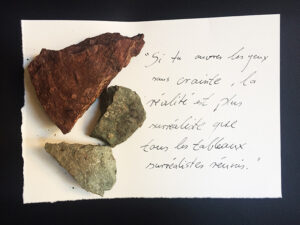 "Si tu ouvres les yeux
sans crainte, la
réalité est plus
surréaliste que
tous les tableaux
surréalistes réunis."